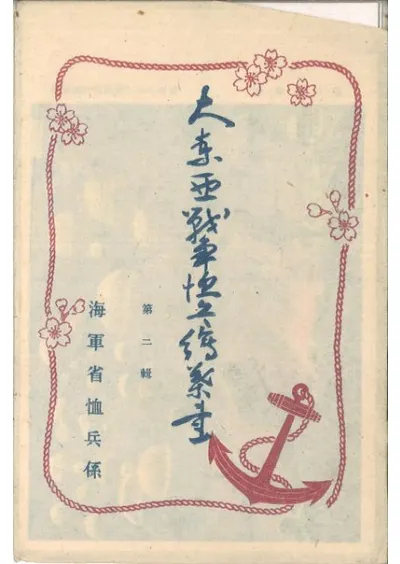 大東亜戦争恤兵繪葉書
第二輯
海軍省恤兵係